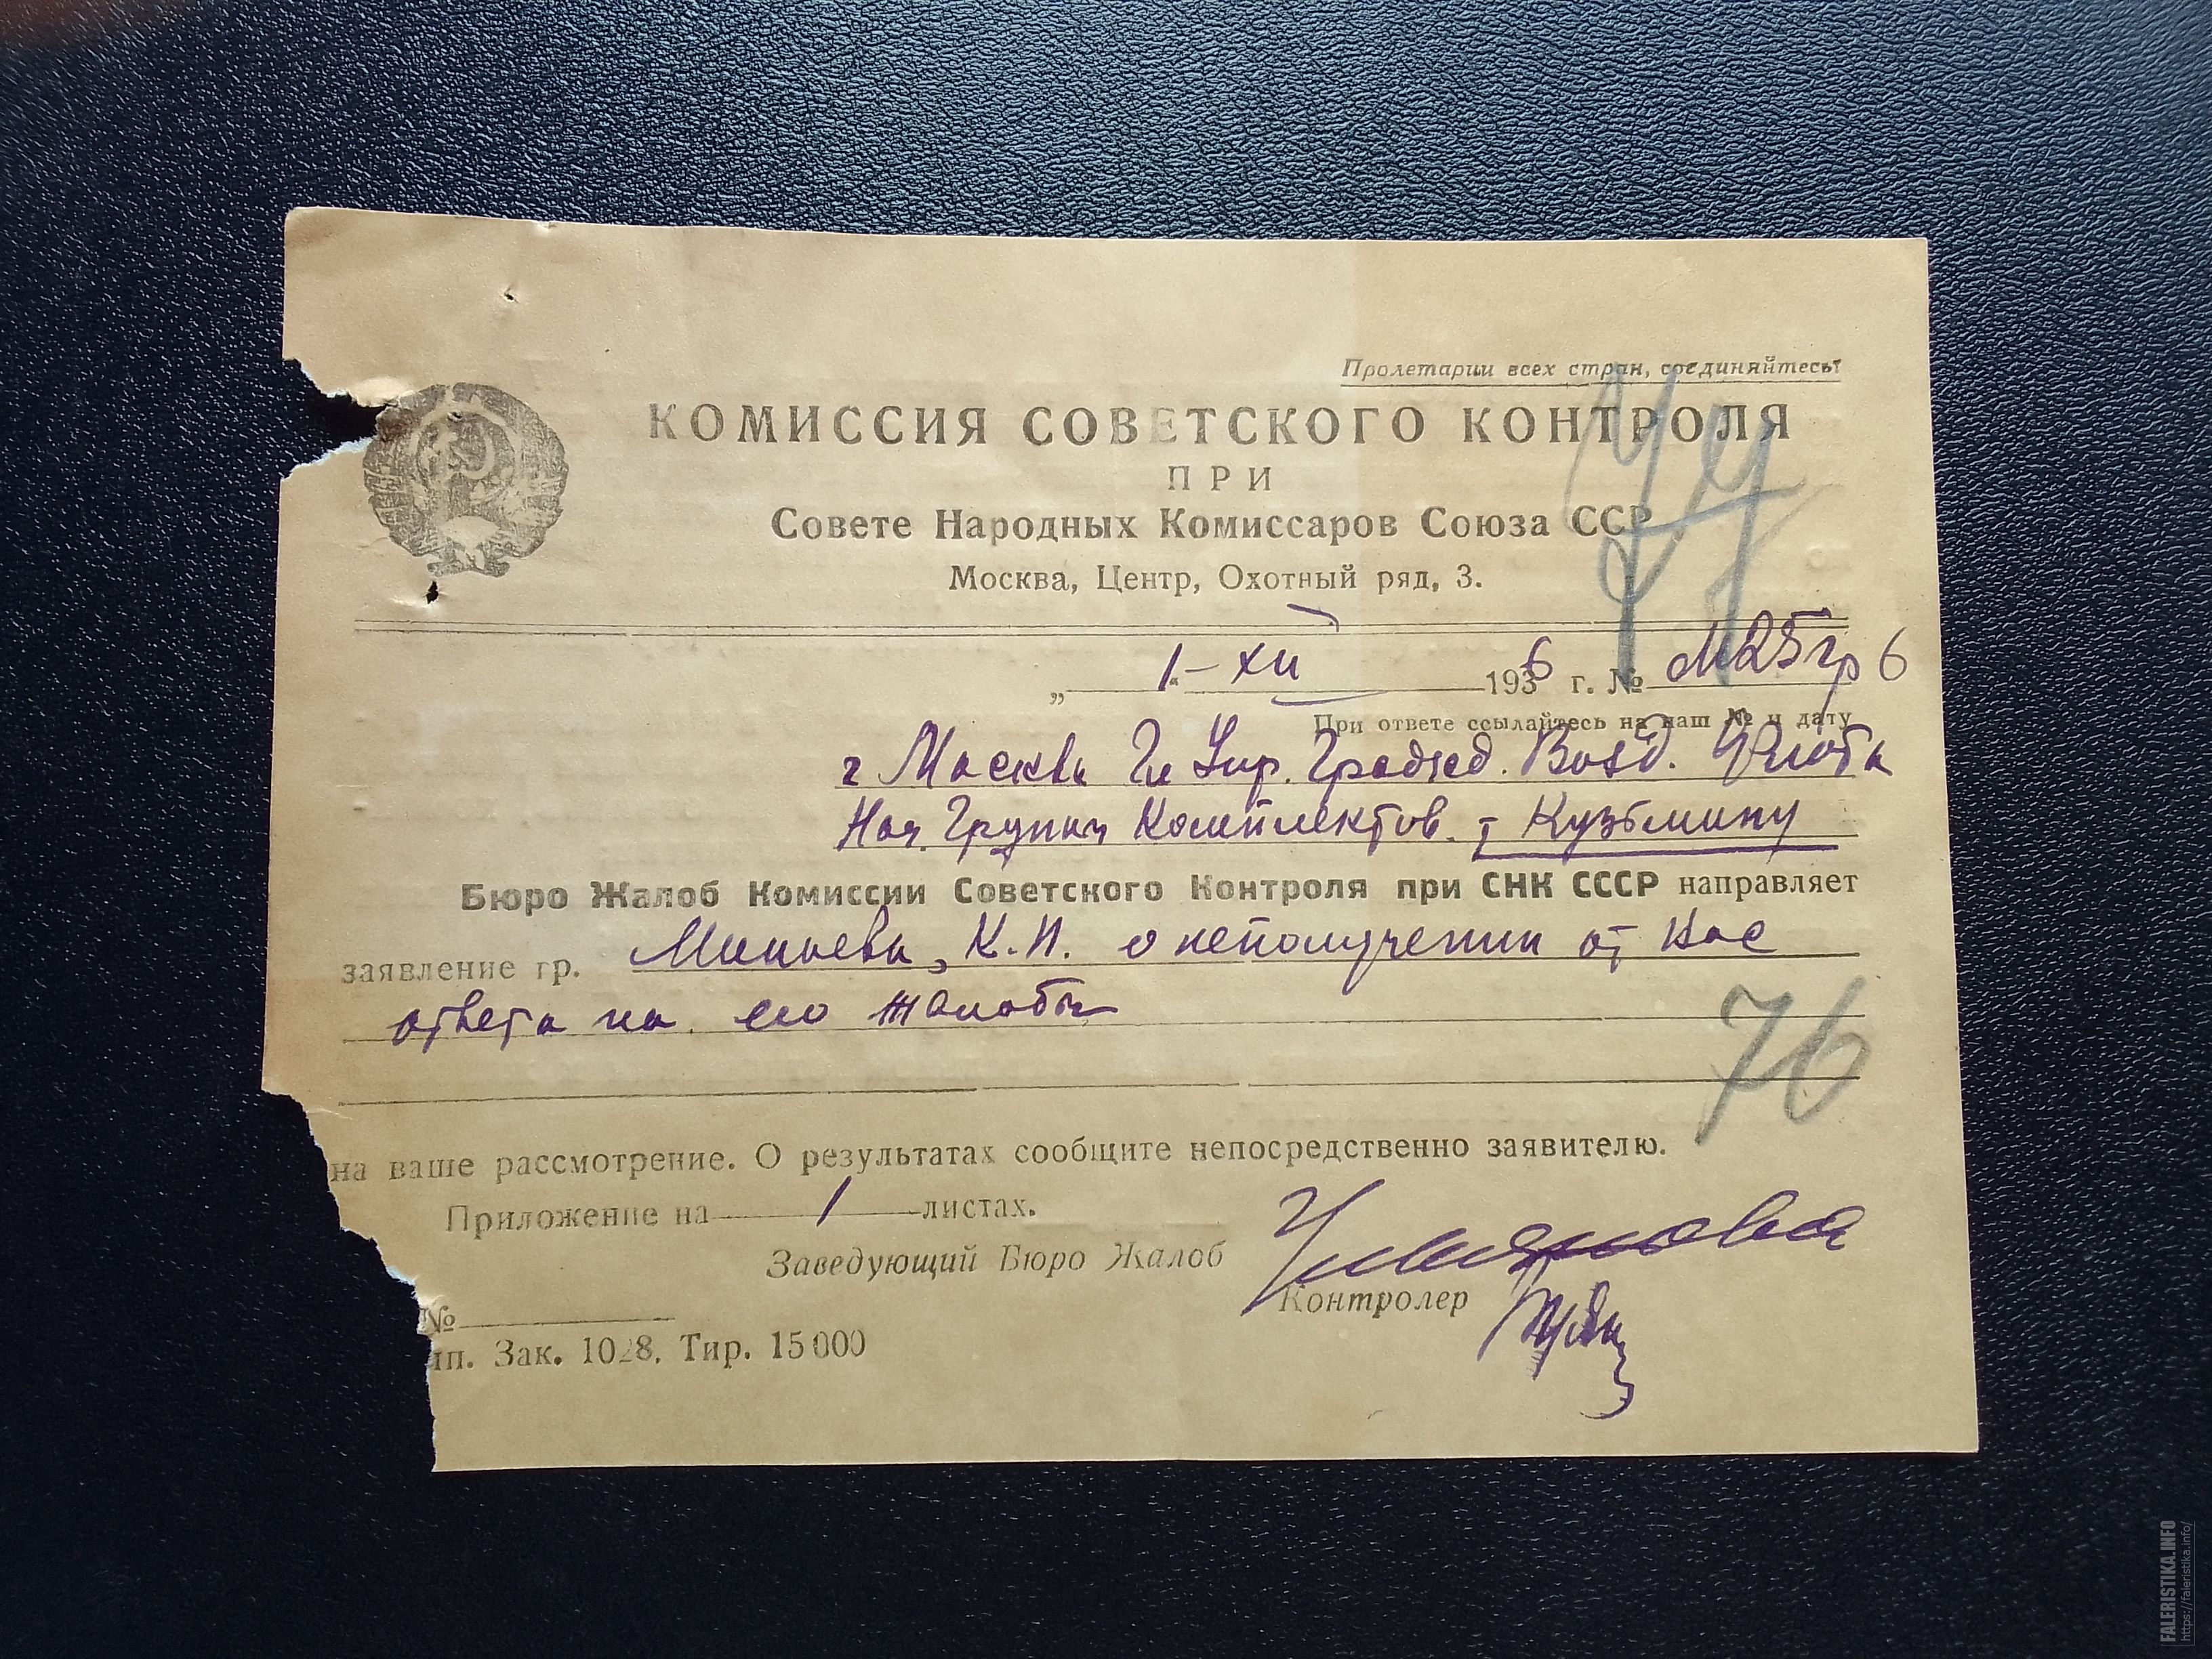 Пролетарии всех стран, соединяйтесь!
КОМИССИЯ СОВЕТСКОГО КОНТРОЛЯ
ПРИ
Совете Народных Комиссаров Союза ССР
Москва, Центр, Охотный ряд, 3.
„ 1 “ - XII 1936 г. № М25гр6
При ответе ссылайтесь на наш № и дату
г Москва Гл Упр. Гражд. Возд. Флота
Нач. Группы Комплектов. т Кузьмину
Бюро Жалоб Комиссии Советского Контроля при СНК СССР направляет
заявление гр. К.П. о неполучении от Вас
ответа на его жалобы
76
на ваше рассмотрение. О результатах сообщите непосредственно заявителю.
Приложение на 1 листах.
Заведующий Бюро Жалоб Ульянова
Контролер
№
ип. Зак. 1028. Тир. 15000
FALERISTIKA.INFO
https://faleristika.info/